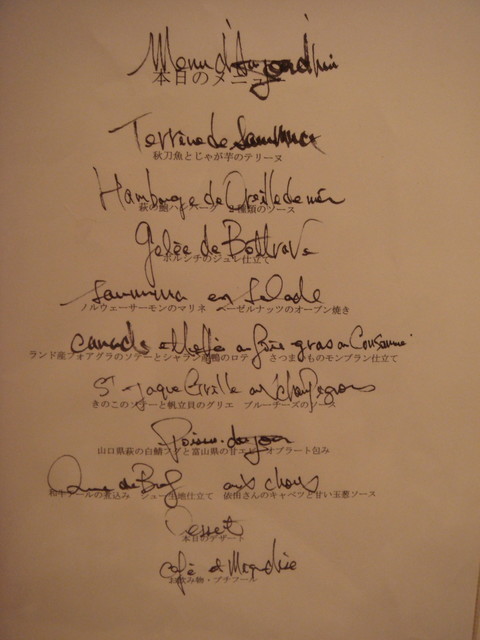 Menu d'Aujourd'hui
本日のメニュー
Terrine de Sammma
秋刀魚とじゃが芋のテリーヌ
de Oreille de mer
萩の鮑ハンバーグ 2種類のソース
Gelée de
ボルシチのジュレ仕立て
sammma en Salade
ノルウェーサーモンのマリネ ヘーゼルナッツのオーブン焼き
canard foie gras
ランド産フォアグラのソテーとシャラン産鴨のロティ さつまいものモンブラン仕立て
St Jaque
きのこのソテーと帆立貝のグリエ ブルーチーズのソース
Poisson du jour
山口県萩の白鯖フグと富山県の甘エビ オブラート包み
de aux choux
和牛テールの煮込み シュー生地仕立て 依田さんのキャベツと甘い玉葱ソース
Dessert
本日のデザート
café et
お飲み物・プチフール